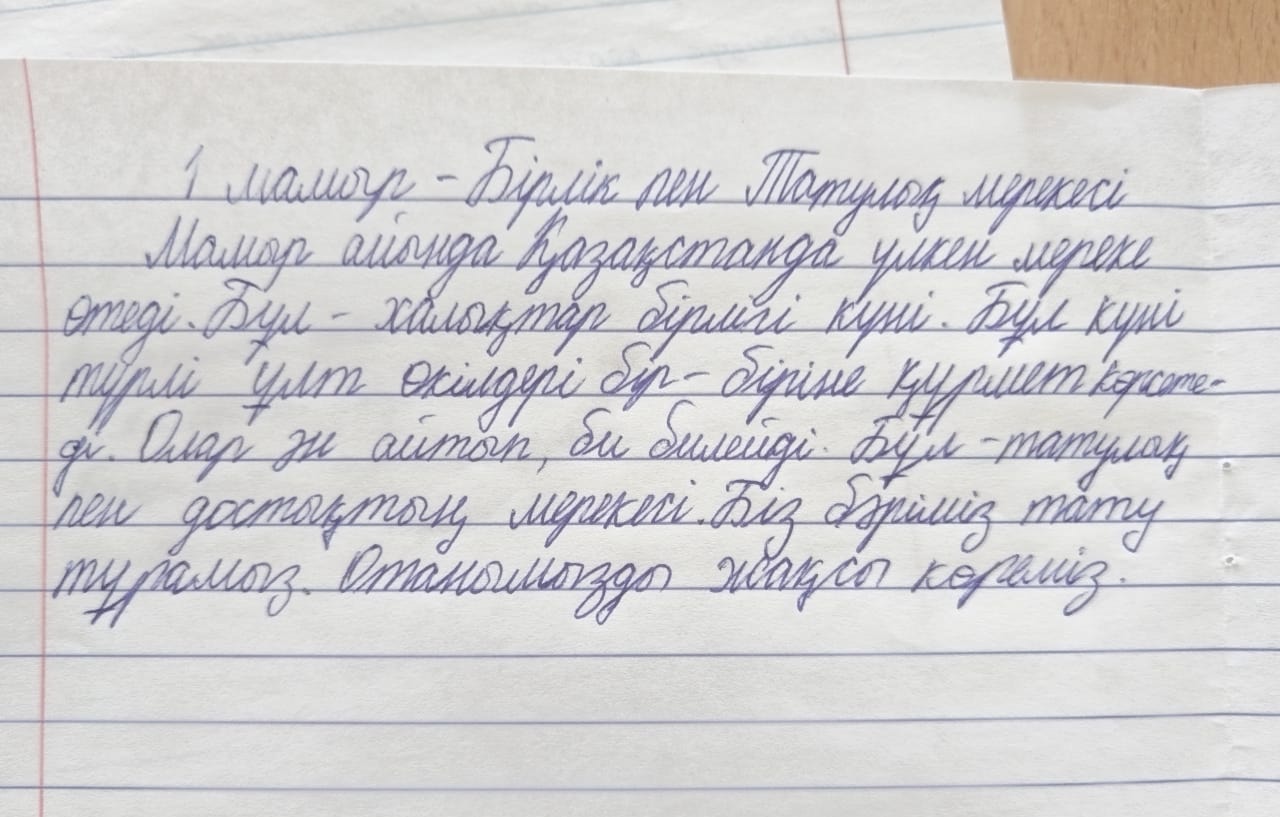 1 мамыр - Бірлік пен Татулық мерекесі
Мамыр айында Қазақстанда үлкен мереке
өтеді. Бұл - халықтар бірлігі күні. Бұл күні
түрлі ұлт өкілдері бір-біріне құрмет көрсете-
ді. Олар ән айтып, би билейді. Бұл - татулық
пен достықтың мерекесі. Біз бәріміз тату
тұрамыз. Отанымызды жақсы көреміз.